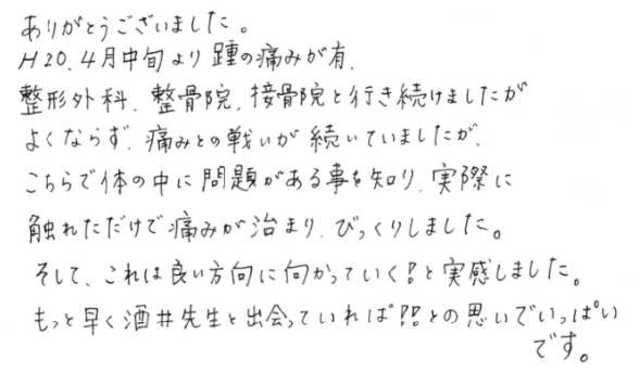 ありがとうございました。
H20.4月中旬より踵の痛みが有、
整形外科、整骨院、接骨院と行き続けましたが
よくならず、痛みとの戦いが続いていましたが、
こちらで体の中に問題がある事を知り、実際に
触れただけで痛みが治まり、びっくりしました。
そして、これは良い方向に向かっていく!と実感しました。
もっと早く酒井先生と出会っていれば!!との思いでいっぱい
です。